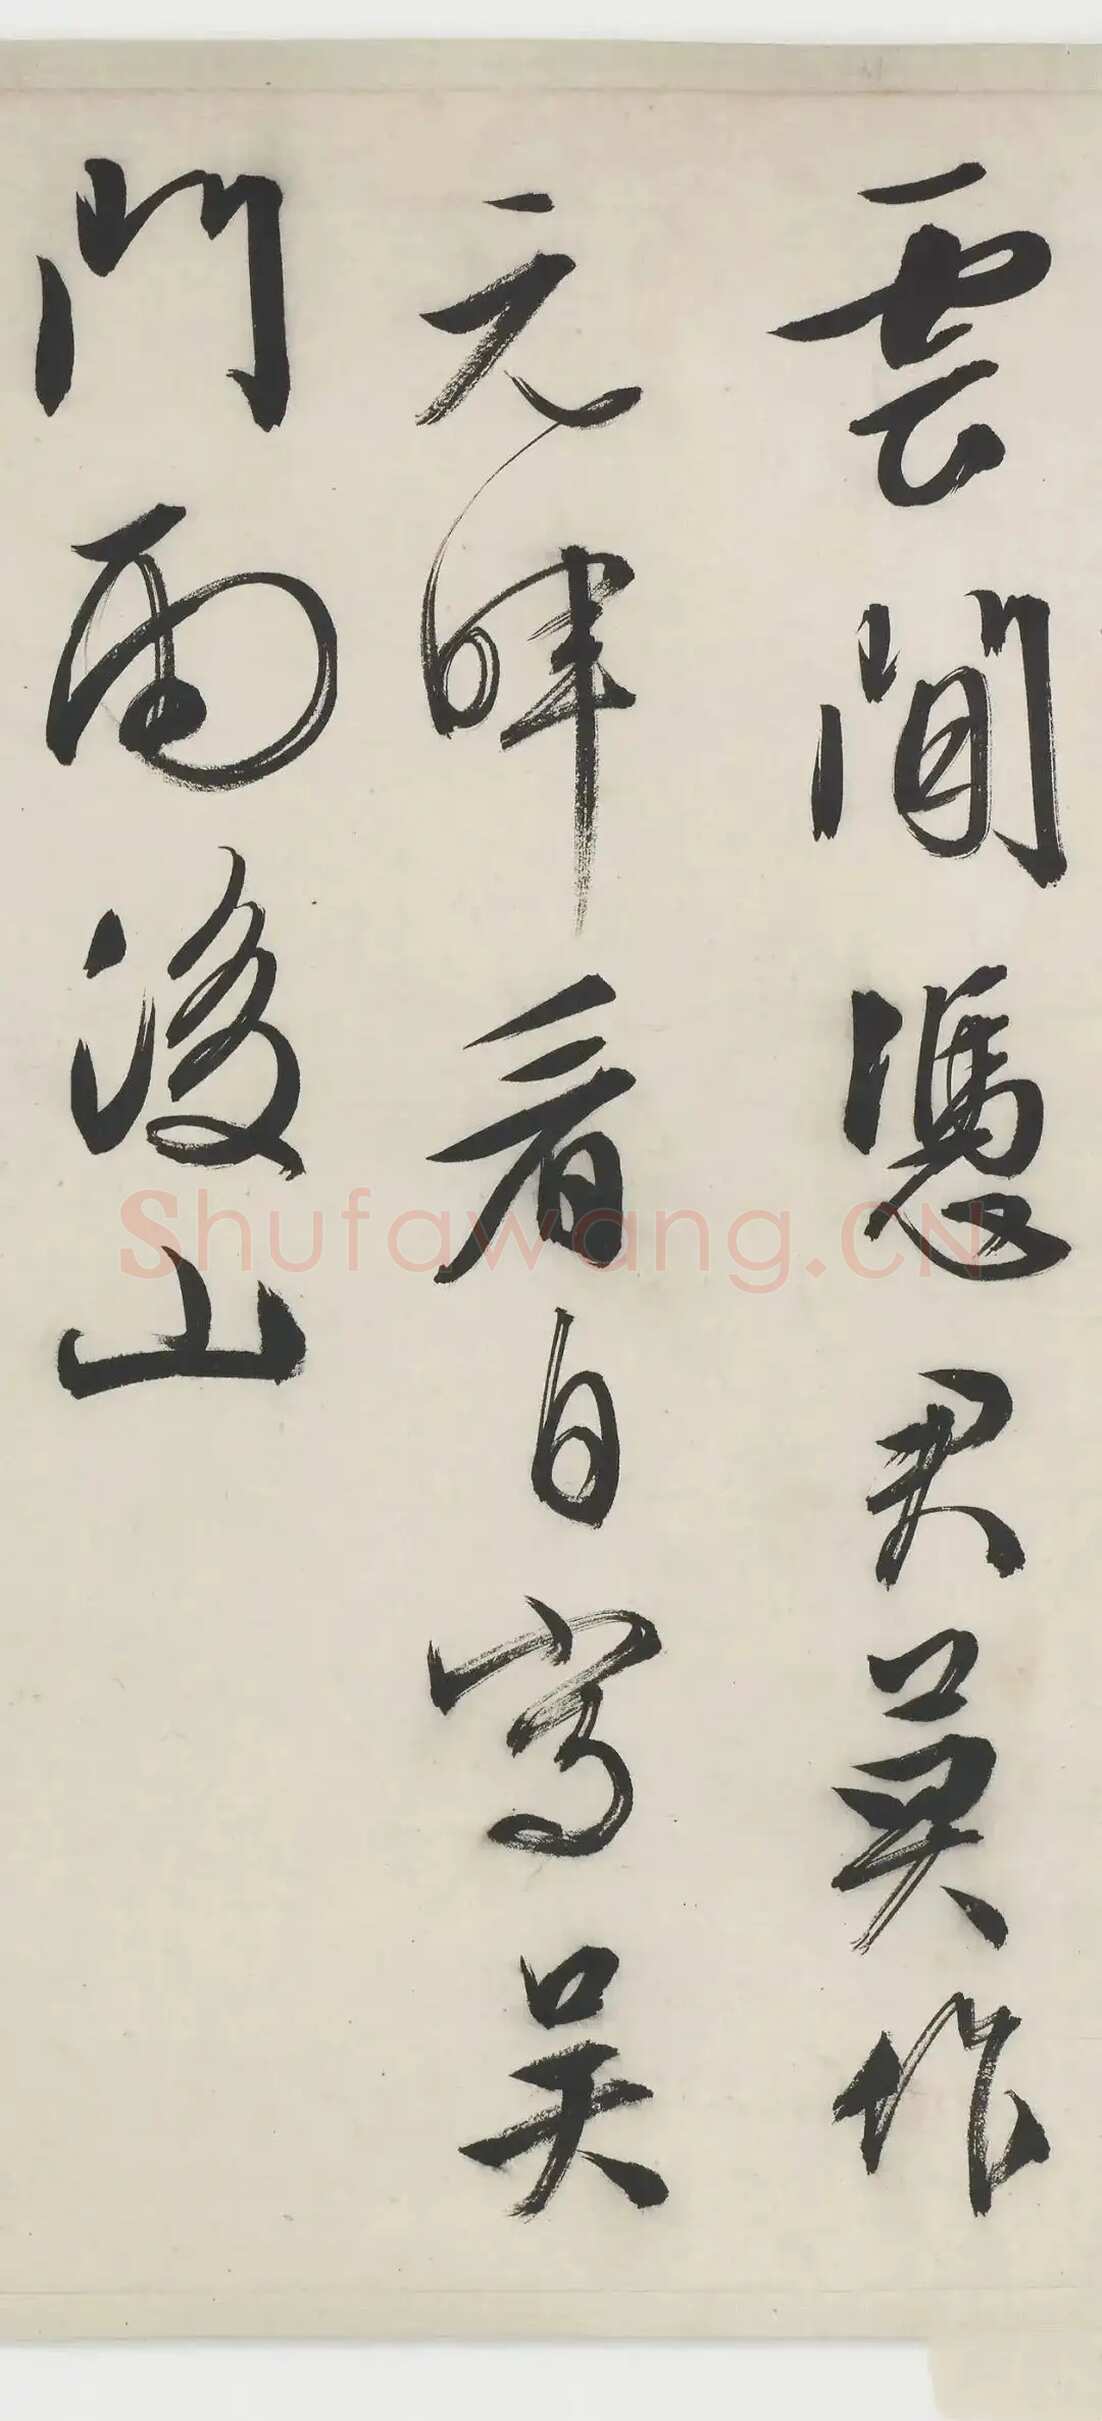 雲間憑君莫作
元暉看自寫吳
門雨後山
Shufawang.CN